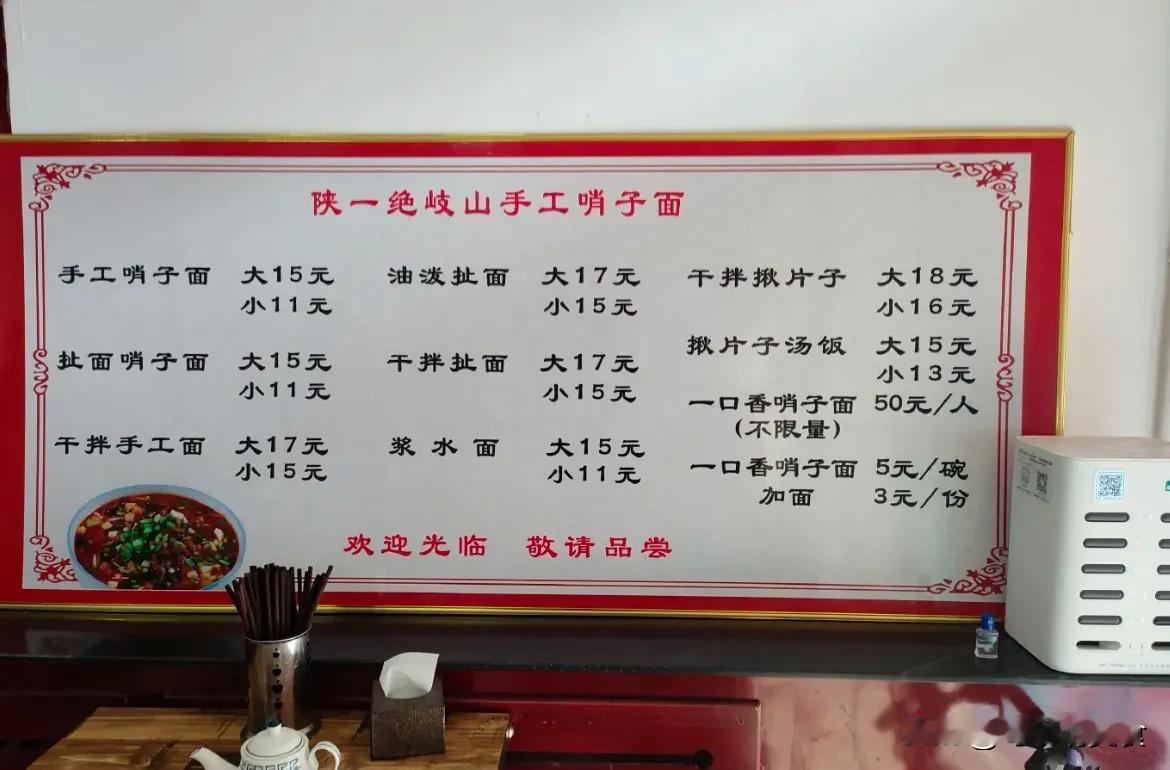 陕一绝岐山手工哨子面
手工哨子面 大15元
小11元
扯面哨子面 大15元
小11元
干拌手工面 大17元
小15元
油泼扯面 大17元
小15元
干拌扯面 大17元
小15元
浆水面 大15元
小11元
干拌揪片子 大18元
小16元
揪片子汤饭 大15元
小13元
一口香哨子面 50元/人
(不限量)
一口香哨子面 5元/碗
加面 3元/份
欢迎光临 敬请品尝